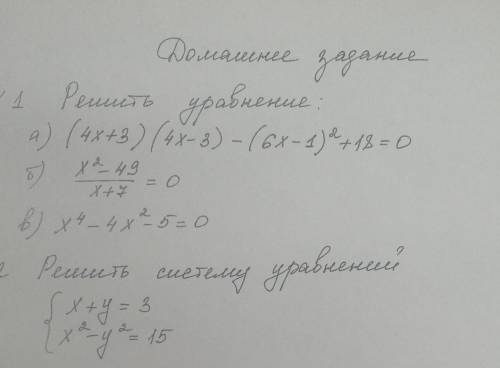 Домашнее задание
1 Решить уравнение:
а) (4x+3)(4x-3)-(6x-1)²+18=0
б) x²-49/x+7 = 0
в) x⁴-4x²-5=0
2 Решить систему уравнений
{ x+y=3
x²-y²=15